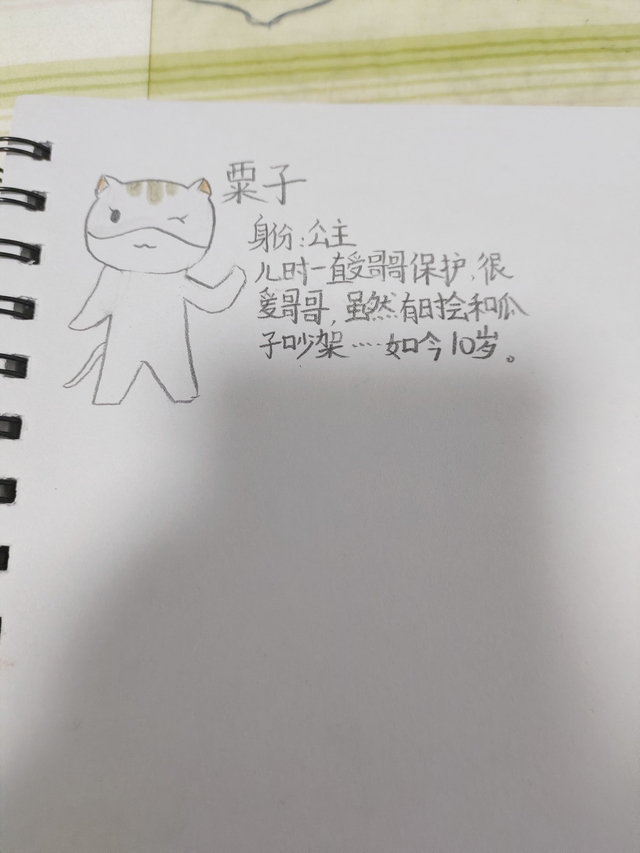 粟子
身份:公主
儿时一直受哥哥保护,很
爱哥哥,虽然有时会和瓜
子吵架……如今10岁。